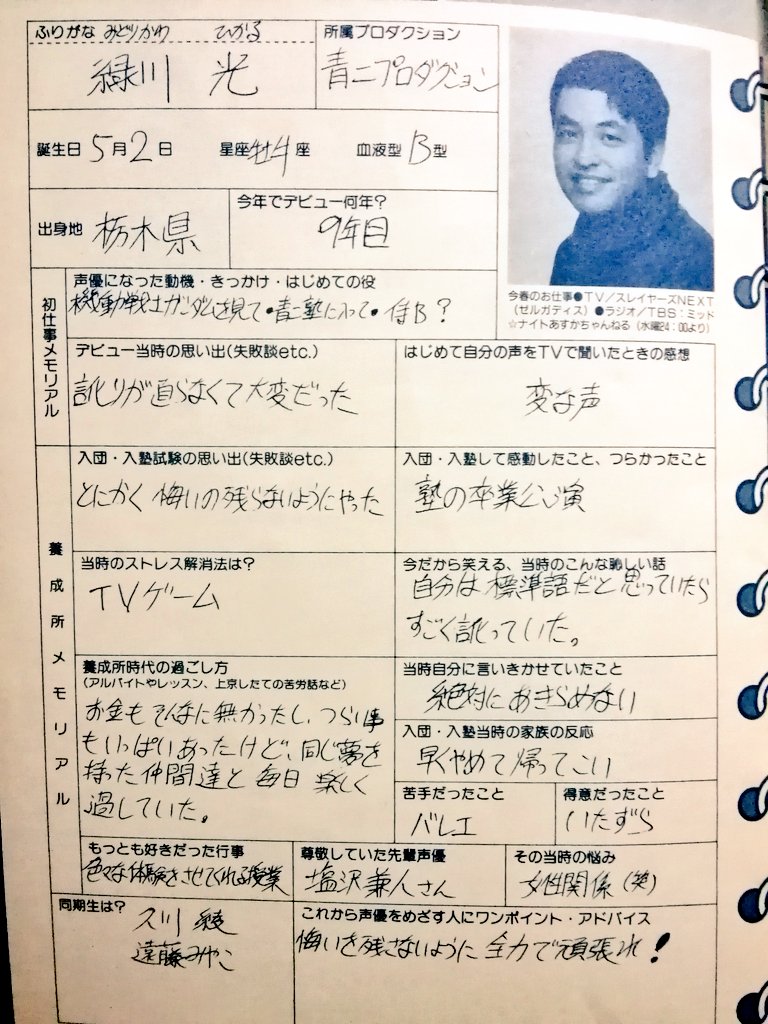 ふりがな みどりかわ ひかる
緑川 光
所属プロダクション
青二プロダクション
誕生日 5月2日 星座 牡牛座 血液型 B型
出身地 栃木県
今年でデビュー何年?
9年目
今春のお仕事●TV/スレイヤーズNEXT
(ゼルガディス) ●ラジオ/TBS:ミッド
☆ナイトあすかちゃんねる(水曜24:00より)
初仕事メモリアル
声優になった動機・きっかけ・はじめての役
機動戦士ガンダムを見て・青二塾に入って・侍B?
デビュー当時の思い出(失敗談etc.)
訛りが直らなくて大変だった
はじめて自分の声をTVで聞いたときの感想
変な声
養成所メモリアル
入団・入塾試験の思い出(失敗談etc.)
とにかく悔いの残らないようにやった
入団・入塾して感動したこと、つらかったこと
塾の卒業公演
当時のストレス解消法は?
TVゲーム
今だから笑える、当時のこんな恥しい話
自分は標準語だと思っていたら
すごく訛っていた。
養成所時代の過ごし方
(アルバイトやレッスン、上京したての苦労話など)
お金もそんなに無かったし、つらい事
もいっぱいあったけど、同じ夢を
持った仲間達と毎日楽しく
過していた。
当時自分に言いきかせていたこと
絶対にあきらめない
入団・入塾当時の家族の反応
早くやめて帰ってこい
苦手だったこと
バレエ
得意だったこと
いたずら
もっとも好きだった行事
色々な体験をさせてくれる授業
尊敬していた先輩声優
塩沢兼人さん
その当時の悩み
女性関係(笑)
同期生は?
久川 綾
遠藤みやこ
これから声優をめざす人にワンポイント・アドバイス
悔いを残さないように全力で頑張れ!